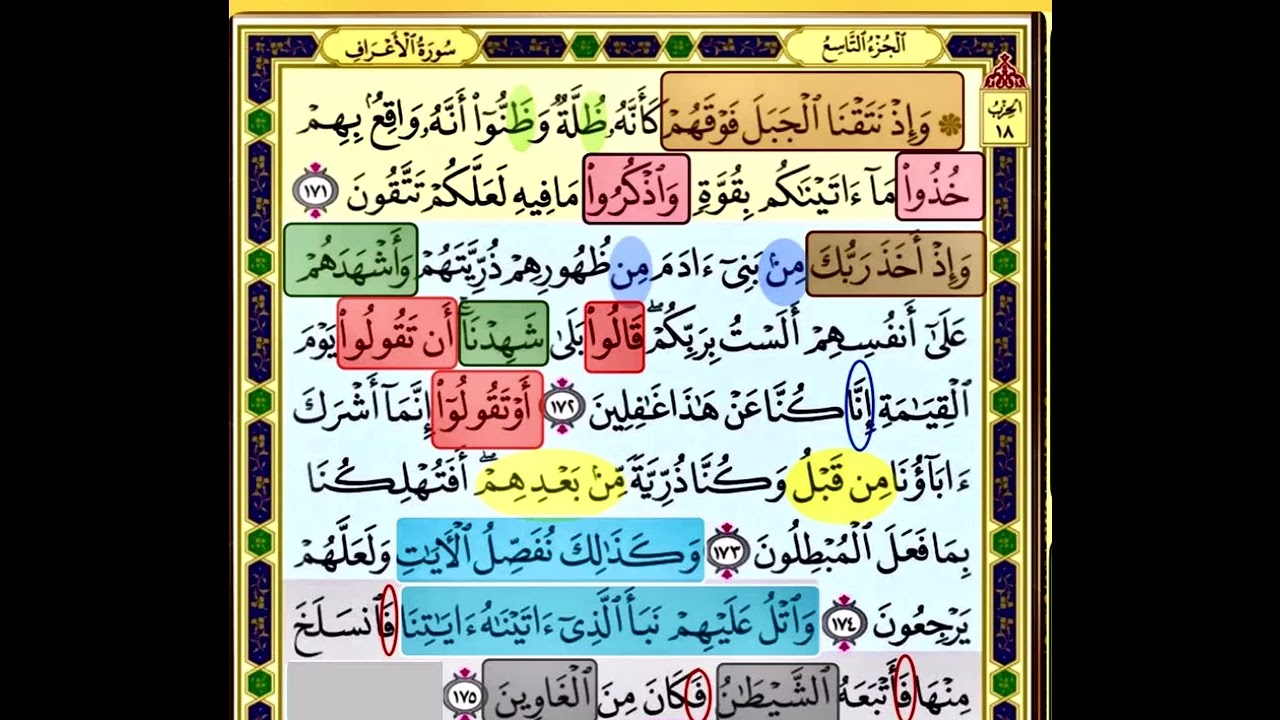 الجُزْءُ التَّاسِعُ
سُورَةُ الأَعْرَافِ
الحِزْبُ
١٨
۞ وَإِذْ نَتَقْنَا ٱلْجَبَلَ فَوْقَهُمْ كَأَنَّهُۥ ظُلَّةٌۭ وَظَنُّوٓا۟ أَنَّهُۥ وَاقِعٌۢ بِهِمْ
خُذُوا۟ مَآ ءَاتَيْنَـٰكُم بِقُوَّةٍۢ وَٱذْكُرُوا۟ مَا فِيهِ لَعَلَّكُمْ تَتَّقُونَ ١٧١
وَإِذْ أَخَذَ رَبُّكَ مِنۢ بَنِىٓ ءَادَمَ مِن ظُهُورِهِمْ ذُرِّيَّتَهُمْ وَأَشْهَدَهُمْ
عَلَىٰٓ أَنفُسِهِمْ أَلَسْتُ بِرَبِّكُمْ ۖ قَالُوا۟ بَلَىٰ ۛ شَهِدْنَآ ۛ أَن تَقُولُوا۟ يَوْمَ
ٱلْقِيَـٰمَةِ إِنَّا كُنَّا عَنْ هَـٰذَا غَـٰفِلِينَ ١٧٢ أَوْ تَقُولُوٓا۟ إِنَّمَآ أَشْرَكَ
ءَابَآؤُنَا مِن قَبْلُ وَكُنَّا ذُرِّيَّةًۭ مِّنۢ بَعْدِهِمْ ۖ أَفَتُهْلِكُنَا
بِمَا فَعَلَ ٱلْمُبْطِلُونَ ١٧٣ وَكَذَٰلِكَ نُفَصِّلُ ٱلْـَٔايَـٰتِ وَلَعَلَّهُمْ
يَرْجِعُونَ ١٧٤ وَٱتْلُ عَلَيْهِمْ نَبَأَ ٱلَّذِىٓ ءَاتَيْنَـٰهُ ءَايَـٰتِنَا فَٱنسَلَخَ
مِنْهَا فَأَتْبَعَهُ ٱلشَّيْطَـٰنُ فَكَانَ مِنَ ٱلْغَاوِينَ ١٧٥